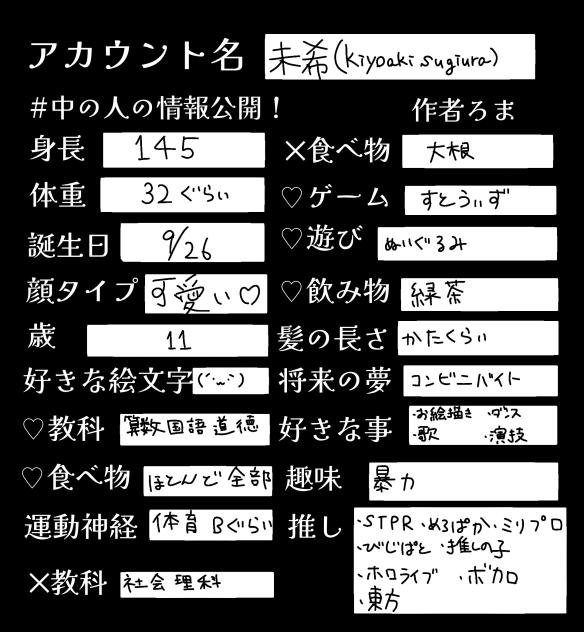 アカウント名 未希(kiyoaki sugiura)
#中の人の情報公開！
作者ろま
身長 145
体重 32ぐらい
誕生日 9/26
顔タイプ 可愛い♡
歳 11
好きな絵文字 (´･ω･`)
♡教科 算数国語道徳
♡食べ物 ほとんど全部
運動神経 体育Bぐらい
×教科 社会理科
×食べ物 大根
♡ゲーム すとうぃず
♡遊び ぬいぐるみ
♡飲み物 緑茶
髪の長さ かたくらい
将来の夢 コンビニバイト
好きな事 ・お絵描き ・ダンス
・歌 ・演技
趣味 暴力
推し ・STPR ・めろぱか ・ミリプロ
・びじぱと ・推しの子
・ホロライブ ・ボカロ
・東方